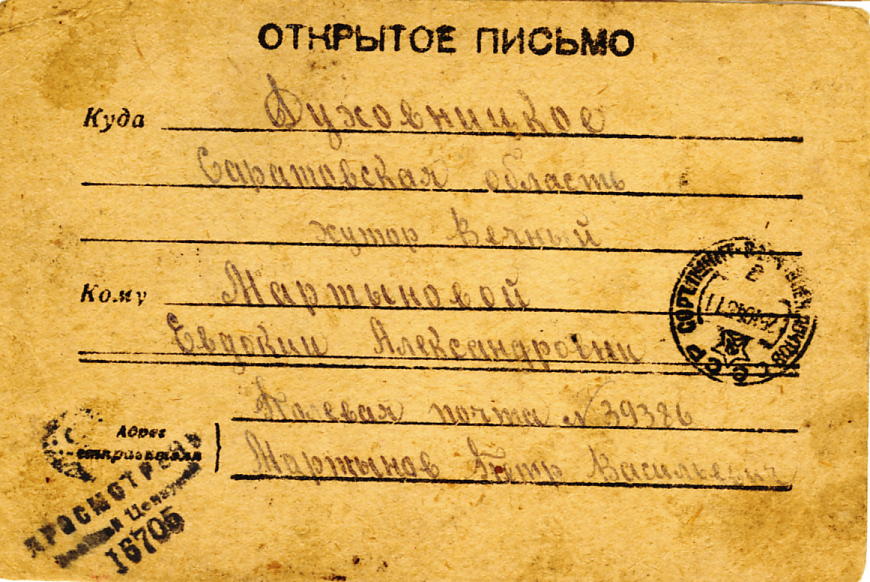 ОТКРЫТОЕ ПИСЬМО
Куда Духовницкое
Саратовская область
хутор Вечный
Кому Мартыновой
Евдокии Александровни
Адрес отправителя
Полевая почта № 39386
Мартынов Петр Васильевич
ПРОСМОТРЕНО
Военной Цензурой
16705
СССР